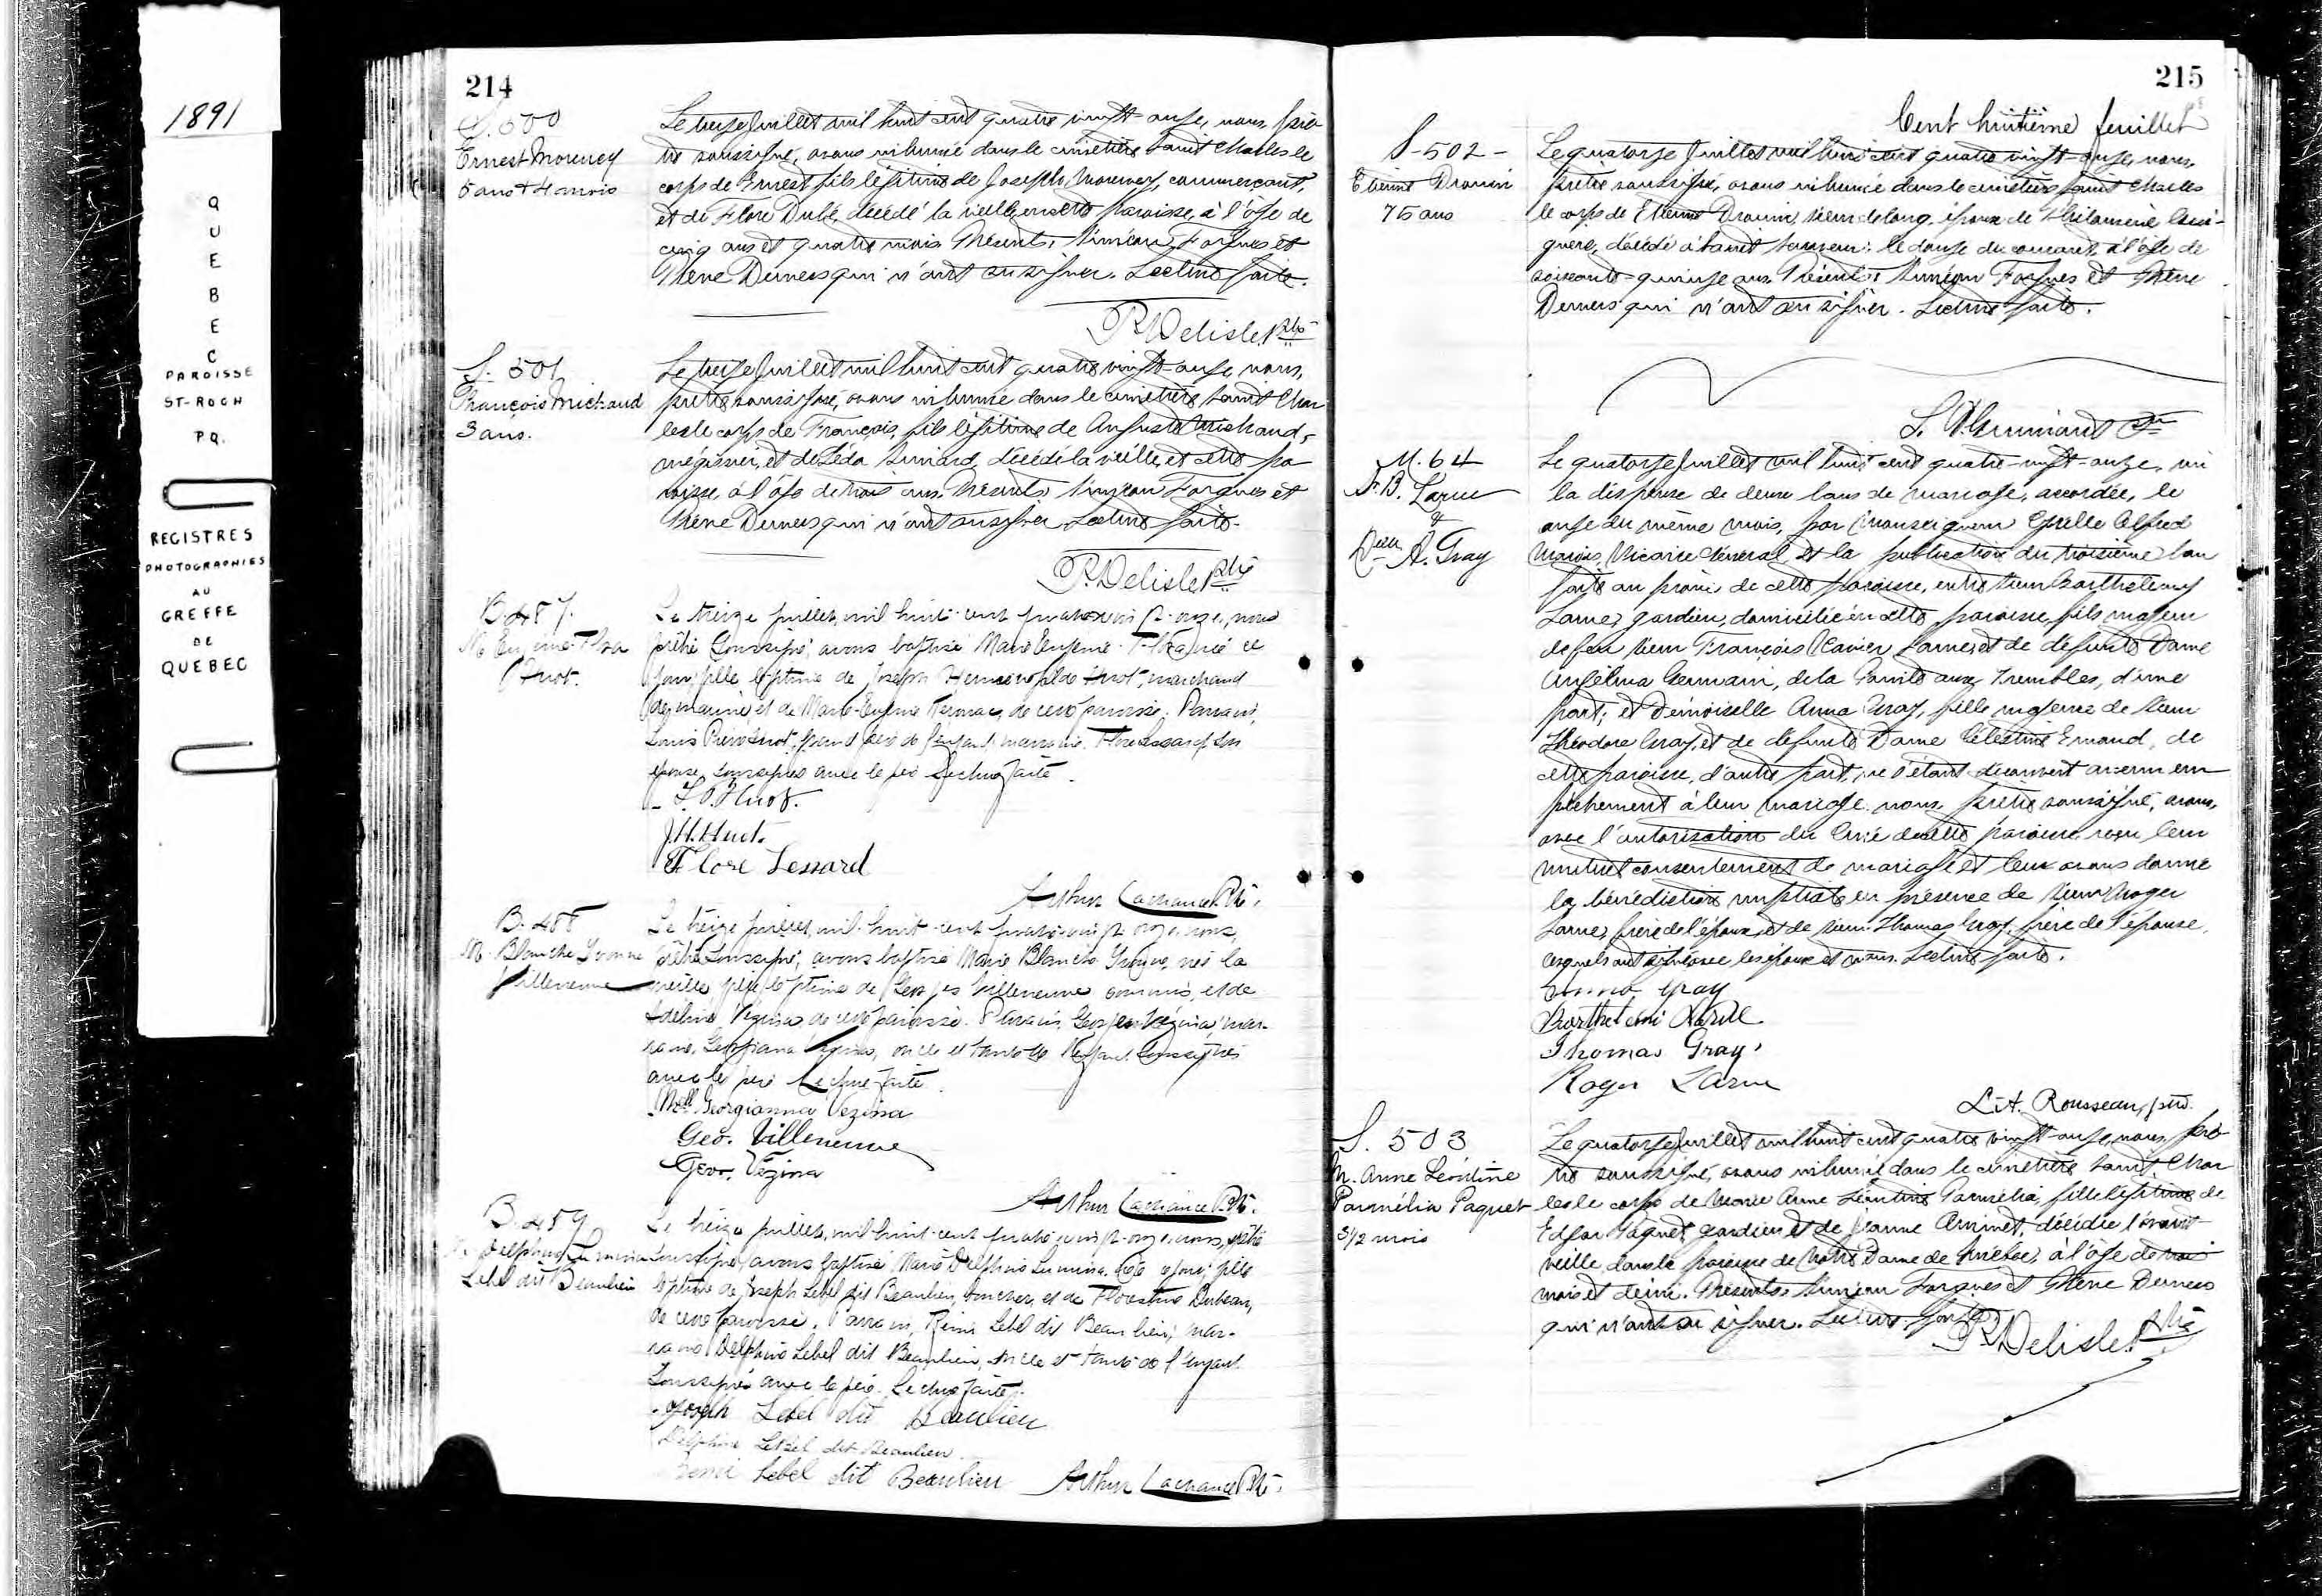 1891
QUEBEC
PAROISSE
ST-ROCH
P.Q.
REGISTRES
PHOTOGRAPHIES
AU
GREFFE
DE
QUEBEC
214
S. 500
Ernest Morency
5 ans & 4 mois
Le treize Juillet mil huit cent quatre vingt-onze, nous, prê-
tre soussigné, avons inhumé dans le cimetière Saint Charles le
corps de Ernest fils légitime de Joseph Morency, commerçant,
et de Flore Dubé, décédé la veille en cette paroisse, à l'âge de
cinq ans et quatre mois. Présents: Siméon Forgues et
Mère Demers qui n'ont su signer. Lecture faite.
P. Delisle Ptre
S. 501
François Michaud
3 ans.
Le treize Juillet mil huit cent quatre vingt-onze, nous,
prêtre soussigné, avons inhumé dans le cimetière Saint Char
les le corps de François, fils légitime de Auguste Michaud,
mégissier, et de Léda Simard, décédé la veille, et cette pa
roisse, à l'âge de trois ans. Présents Siméon Forgues et
Mère Demers qui n'ont su signer. Lecture faite.
P. Delisle Ptre
B. 487.
M. Eugénie
Huot.
Le treize juillet, mil huit-cent quatre vingt-onze, nous
prêtre soussigné, avons baptisé Marie Eugénie née ce
jour, fille légitime de Joseph Huot, marchand
de marine, et de Marie-Eugénie de cette paroisse. Parrain,
Louis Huot, grand père de l'enfant, marraine, Flore Lessard son
épouse, soussignés avec le père. Lecture faite.
Huot.
J.H. Huot.
Flore Lessard
Arthur Lachance Ptre.
B. 488
M. Blanche Yvonne
Villeneuve
Le treize juillet, mil-huit-cent quatre-vingt-onze, nous,
prêtre soussigné, avons baptisé Marie Blanche Yvonne, née la
veille, fille légitime de Georges Villeneuve commis, et de
Adeline Vézina de cette paroisse. Parrain, Georges Vézina, mar-
raine, Georgiana Vézina, oncle et tante de l'enfant soussignés
avec le père. Lecture faite.
Mell Georgianna Vezina
Geo. Villeneuve
Geo. Vézina
Arthur Lachance Ptre.
B. 489
Delphine Lumina
Lebel dit Beaulieu
Le treize juillet, mil-huit-cent quatre-vingt-onze, nous, prêtre
soussigné avons baptisé Marie Delphine Lumina, née ce jour, fille
légitime de Joseph Lebel dit Beaulieu, boucher, et de
de cette paroisse. Parrain, Rémi Lebel dit Beaulieu, mar-
raine Delphine Lebel dit Beaulieu, oncle et tante de l'enfant
soussignés avec le père. Lecture faite.
Joseph Lebel dit Beaulieu
Delphine Lebel dit Beaulieu
Remi Lebel dit Beaulieu
Arthur Lachance Ptre.
215
Cent huitième feuillet
S-502-
Etienne Drouin
75 ans
Le quatorze Juillet mil huit cent quatre vingt-onze, nous,
prêtre soussigné, avons inhumé dans le cimetière Saint Charles
le corps de Etienne Drouin, époux de Philomène
décédé à Saint Sauveur, le douze du courant, à l'âge de
soixante-quinze ans. Présents: Siméon Forgues et Mère
Demers qui n'ont su signer. Lecture faite.
M. 64
B. Larue
&
Delle A. Gray
Le quatorze Juillet mil huit cent quatre-vingt-onze, vu
la dispense de deux bans de mariage, accordée, le
onze du même mois, par Monseigneur Cyrille Alfred
Marois, Vicaire Général, et la publication du troisième ban
faite au prône de cette paroisse, entre Sieur Barthelemy
Larue, gardien, domicilié en cette paroisse, fils majeur
de feu Sieur François Xavier Larue et de défunte Dame
Angelina Germain, de la Pointe aux Trembles, d'une
part; et Demoiselle Anna Gray, fille majeure de Sieur
Théodore Gray, et de défunte Dame Célestine Emond, de
cette paroisse, d'autre part, ne s'étant découvert aucun em
pêchement à leur mariage nous, prêtre soussigné, avons,
avec l'autorisation du Curé de cette paroisse reçu leur
mutuel consentement de mariage et leur avons donné
la bénédiction nuptiale en présence de Sieur Roger
Larue, frère de l'époux, et de Sieur Thomas Gray, frère de l'épouse,
lesquels ont signé avec les époux et nous. Lecture faite.
Anna Gray
Barthelemi LaRue
Thomas Gray
Roger LaRue
Rousseau, ptre.
S. 503
M. Anne Léontine
Parmélia Paquet
3 1/2 mois
Le quatorze Juillet mil huit cent quatre vingt-onze, nous, prê-
tre soussigné, avons inhumé dans le cimetière Saint Char
les le corps de Marie Anne Léontine Parmélia, fille légitime de
Edgar Paquet, gardien et de Jeanne décédée l'avant-
veille, dans la paroisse de Notre Dame de Québec, à l'âge de trois
mois et demi. Présents: Siméon Forgues et Mère Demers
qui n'ont su signer. Lecture faite.
P. Delisle Ptre